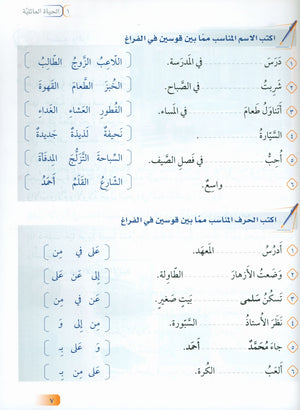 ١ الحياة العائليّة
اكتب الاسم المناسب ممّا بين قوسين في الفراغ
١ دَرَسَ ............ في المَدرَسة. ( اللاعِبُ الزَّوجُ الطّالِبُ )
٢ شَرِبتُ ............ في الصَّباح. ( الخُبزَ الطَّعامَ القَهوَةَ )
٣ أتَناوَلُ طَعامَ ............ في المَساء. ( الفُطورِ العَشاءِ الغَداءِ )
٤ السَّيّارَةُ ............ ( نَحيفَةٌ لَذيذَةٌ جَديدَةٌ )
٥ أُحِبُّ ............ في فَصلِ الصَّيف. ( السِّباحَةَ التَّزَلُّجَ المِدفَأةَ )
٦ ............ واسِعٌ. ( الشّارِعُ القَلَمُ أحمَدُ )
اكتب الحرف المناسب ممّا بين قوسين في الفراغ
١ أدرُسُ ............ المَعهَد. ( عَلى في مِن )
٢ وَضَعتُ الأزهارَ ............ الطّاوِلة. ( إلى عَن عَلى )
٣ تَسكُنُ سَلمى ............ بَيتٍ صَغيرٍ. ( عَن في مِن )
٤ نَظَرَ الأُستاذُ ............ السَّبّورة. ( مِن إلى وَ )
٥ جاءَ مُحَمَّدٌ ............ أحمَد. ( وَ عَلى بِـ )
٦ ألعَبُ ............ الكُرة. ( عَلى مِن بِـ )
٧